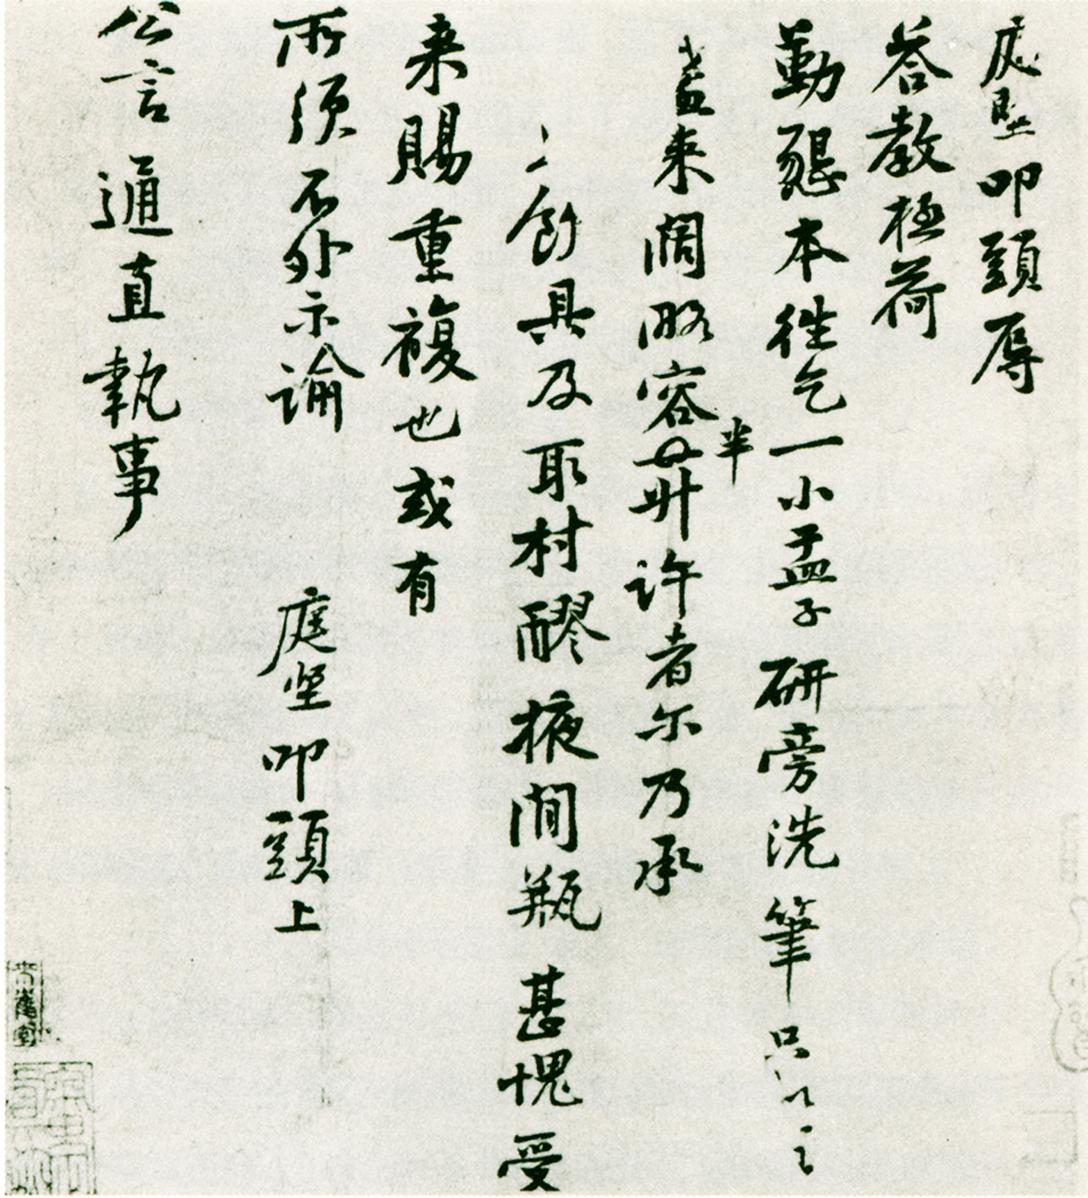 庭堅叩頭辱
答教極荷
勤懇本徃乞一小盂子研旁洗筆只以
盖来濶略容半升許者尒乃承
飲具及取村醪掖間瓶甚愧受
来賜重複也或有
所須不外示諭 庭堅叩頭上
公言通直執事